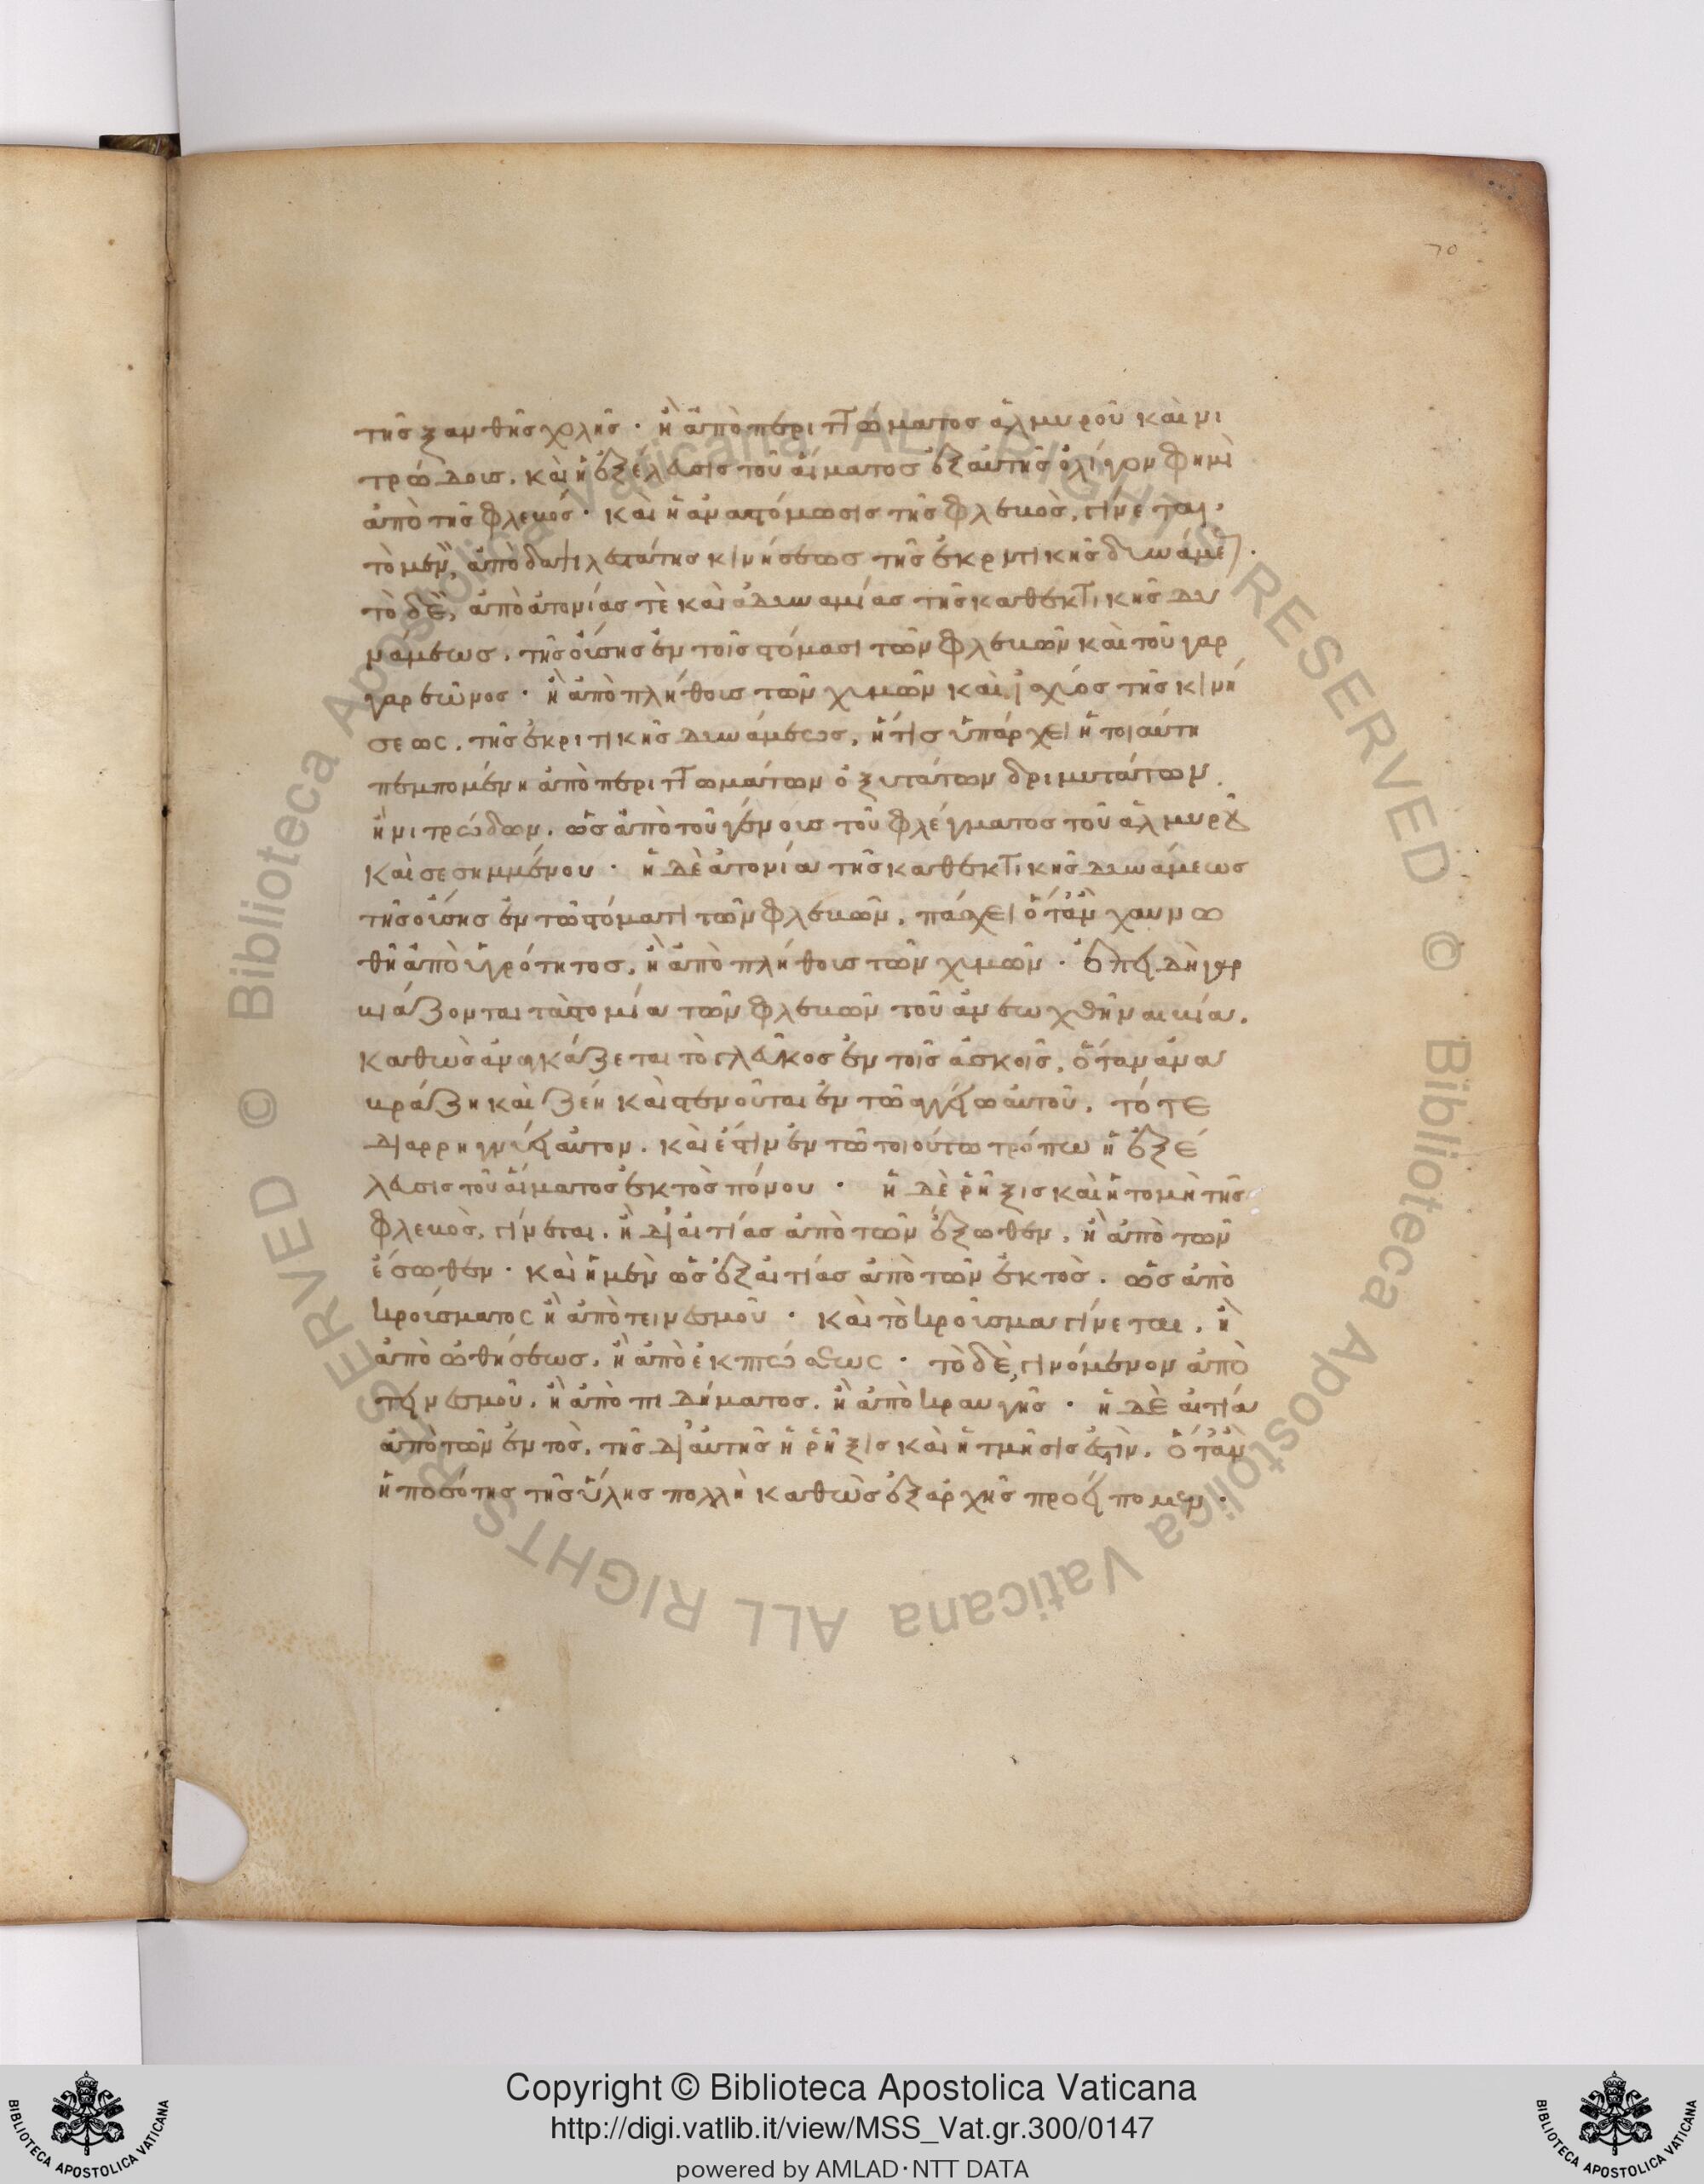 70
τῆς ξανθῆς χολῆς · ἢ ἀπὸ περιττώματος ἁλμυροῦ καὶ νι
τρώδους. καὶ ἡ ἐξέλασις τοῦ αἵματος ἐξ αὐτῆς ὀλίγον φημὶ
ἀπὸ τῆς φλεβός · καὶ ἡ ἀναστόμωσις τῆς φλεβὸς, γίνεται·
τὸ μὲν, ἀπὸ δαψιλεστάτης κινήσεως τῆς ἐκκριτικῆς δυνάμε
τὸ δὲ, ἀπὸ ἀτονίας τὲ καὶ ἀδυναμίας τῆς καθεκτικῆς δυ
νάμεως. τῆς οὔσης ἐν τοῖς στόμασι τῶν φλεβῶν καὶ τοῦ γαρ
γαρεῶνος · ἢ ἀπὸ πλήθους τῶν χυμῶν καὶ ἰσχύος τῆς κινή
σεως. τῆς ἐκκριτικῆς δυνάμεως, ἥτις ὑπάρχει ἡ τοιαύτη
πεμπομένη ἀπὸ περιττωμάτων ὀξυτάτων δριμυτάτων.
ἢ νιτρώδων. ὡς ἀπὸ τοῦ γένους τοῦ φλέγματος τοῦ ἁλμυροῦ
καὶ σεσημμένου · ἡ δὲ ἀτονία τῆς καθεκτικῆς δυνάμεως
τῆς οὔσης ἐν τῷ στόματι τῶν φλεβῶν, πάσχει ὅταν χαυνω
θῇ ἀπὸ ὑγρότητος, ἢ ἀπὸ πλήθους τῶν χυμῶν · ἐπειδὴ γὰρ
βιάζονται τὰ στομία τῶν φλεβῶν τοῦ ἀνεωχθῆναι βία.
καθὼς ἀναγκάζεται τὸ γλεῦκος ἐν τοῖς ἀσκοῖς, ὅταν ἀνα
βράζῃ καὶ ζέῃ καὶ στενοῦται ἐν τῷ ἀγγείῳ αὐτοῦ. τότε
διαρρηγνύει αὐτον. καὶ ἔστιν ἐν τῷ τοιούτω τρόπω ἡ ἐξέ
λασις τοῦ αἵματος ἐκτὸς πόνου · ἡ δὲ ῥῆξις καὶ ἡ τομὴ τῆς
φλεβὸς, γίνεται. ἢ δι' αἰτίας ἀπὸ τῶν ἔξωθεν, ἢ ἀπὸ τῶν
ἔσωθεν · καὶ ἡ μὲν ὡς ἐξ αἰτίας ἀπὸ τῶν ἐκτὸς. ὡς ἀπὸ
κρούσματος ἢ ἀπὸ τεινεσμοῦ · καὶ τὸ κροῦσμα γίνεται, ἢ
ἀπὸ ὠθήσεως, ἢ ἀπὸ ἐκπτώσεως · τὸ δὲ, γινόμενον ἀπὸ
τεινεσμοῦ, ἢ ἀπὸ πιδήματος. ἢ ἀπὸ κραυγῆς · ἡ δὲ αἰτία
ἀπὸ τῶν ἐντὸς, τῆς δι' αὐτῆς ἡ ῥῆξις καὶ ἡ τμῆσις ἐστὶν. ὅταν
ἡ ποσότης τῆς ὕλης πολλὴ καθὼς ἐξ ἀρχῆς προείπομεν ·
Copyright © Biblioteca Apostolica Vaticana
http://digi.vatlib.it/view/MSS_Vat.gr.300/0147
powered by AMLAD·NTT DATA
BIBLIOTECA APOSTOLICA VATICANA
BIBLIOTECA APOSTOLICA VATICANA
© Biblioteca Apostolica Vaticana ALL RIGHTS RESERVED © Biblioteca Apostolica Vaticana ALL RIGHTS RESERVED